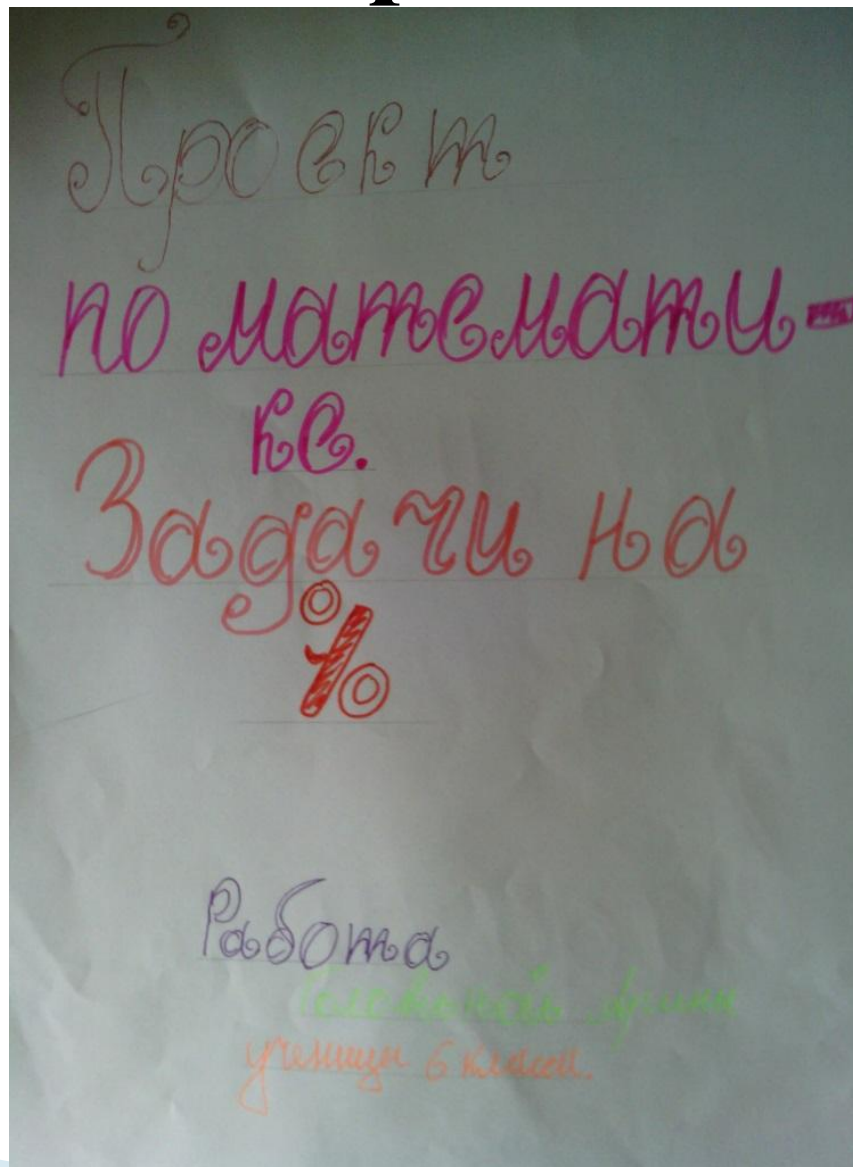 Проект
по математи-
ке.
Задачи на
%
Работа
Арины
ученицы 6 класса.